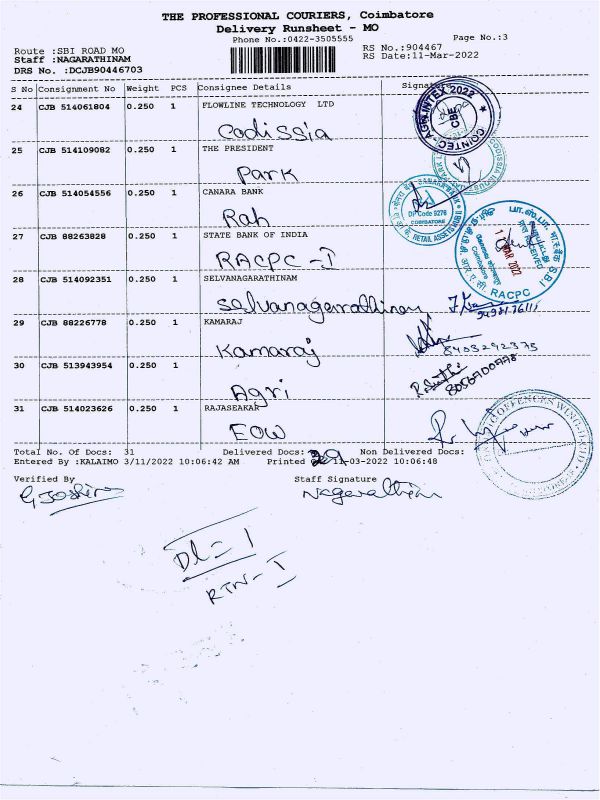 THE PROFESSIONAL COURIERS, Coimbatore
Delivery Runsheet - MO
Phone No.:0422-3505555 Page No.:3
Route :SBI ROAD MO RS No.:904467
Staff :NAGARATHINAM RS Date:11-Mar-2022
DRS No. :DCJB90446703
S No Consignment No Weight PCS Consignee Details Signature
24 CJB 514061804 0.250 1 FLOWLINE TECHNOLOGY LTD
Codissia
COINTEC-AGRI INTEX 2022 CBE
25 CJB 514109082 0.250 1 THE PRESIDENT
Park
26 CJB 514054556 0.250 1 CANARA BANK
Rah
DP Code 9278
COIMBATORE
RETAIL ASSETS HUB II
27 CJB 88263828 0.250 1 STATE BANK OF INDIA
RACPC - I
MAR 2022
RECEIVED
RACPC
SBI
28 CJB 514092351 0.250 1 SELVANAGARATHINAM
Selvanagarathinam
29 CJB 88226778 0.250 1 KAMARAJ
Kamaraj
8403292375
30 CJB 513943954 0.250 1
Agri
31 CJB 514023626 0.250 1 RAJASEAKAR
EOW
OFFENCES WING
Total No. Of Docs: 31 Delivered Docs: 29 Non Delivered Docs:
Entered By :KALAIMO 3/11/2022 10:06:42 AM Printed 11-03-2022 10:06:48
Verified By Staff Signature
Nagarathinam
DL = 1
RTN - I